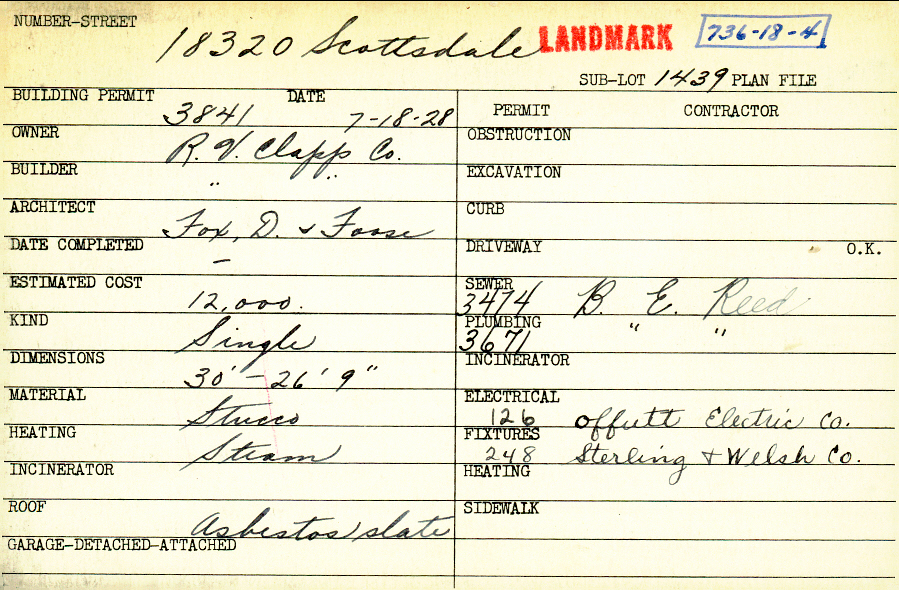 NUMBER-STREET
18320 Scottsdale LANDMARK 736-18-4
SUB-LOT 1439 PLAN FILE
BUILDING PERMIT 3841 DATE 7-18-28
OWNER R. V. Clapp Co.
BUILDER " "
ARCHITECT Fox, D. & Foose
DATE COMPLETED -
ESTIMATED COST 12,000.
KIND Single
DIMENSIONS 30' - 26' 9"
MATERIAL Stucco
HEATING Steam
INCINERATOR
ROOF Asbestos slate
GARAGE-DETACHED-ATTACHED
PERMIT CONTRACTOR
OBSTRUCTION
EXCAVATION
CURB
DRIVEWAY O.K.
SEWER
3474 B. E. Reed
PLUMBING " "
3671
INCINERATOR
ELECTRICAL
126 Offutt Electric Co.
FIXTURES
248 Sterling & Welsh Co.
HEATING
SIDEWALK